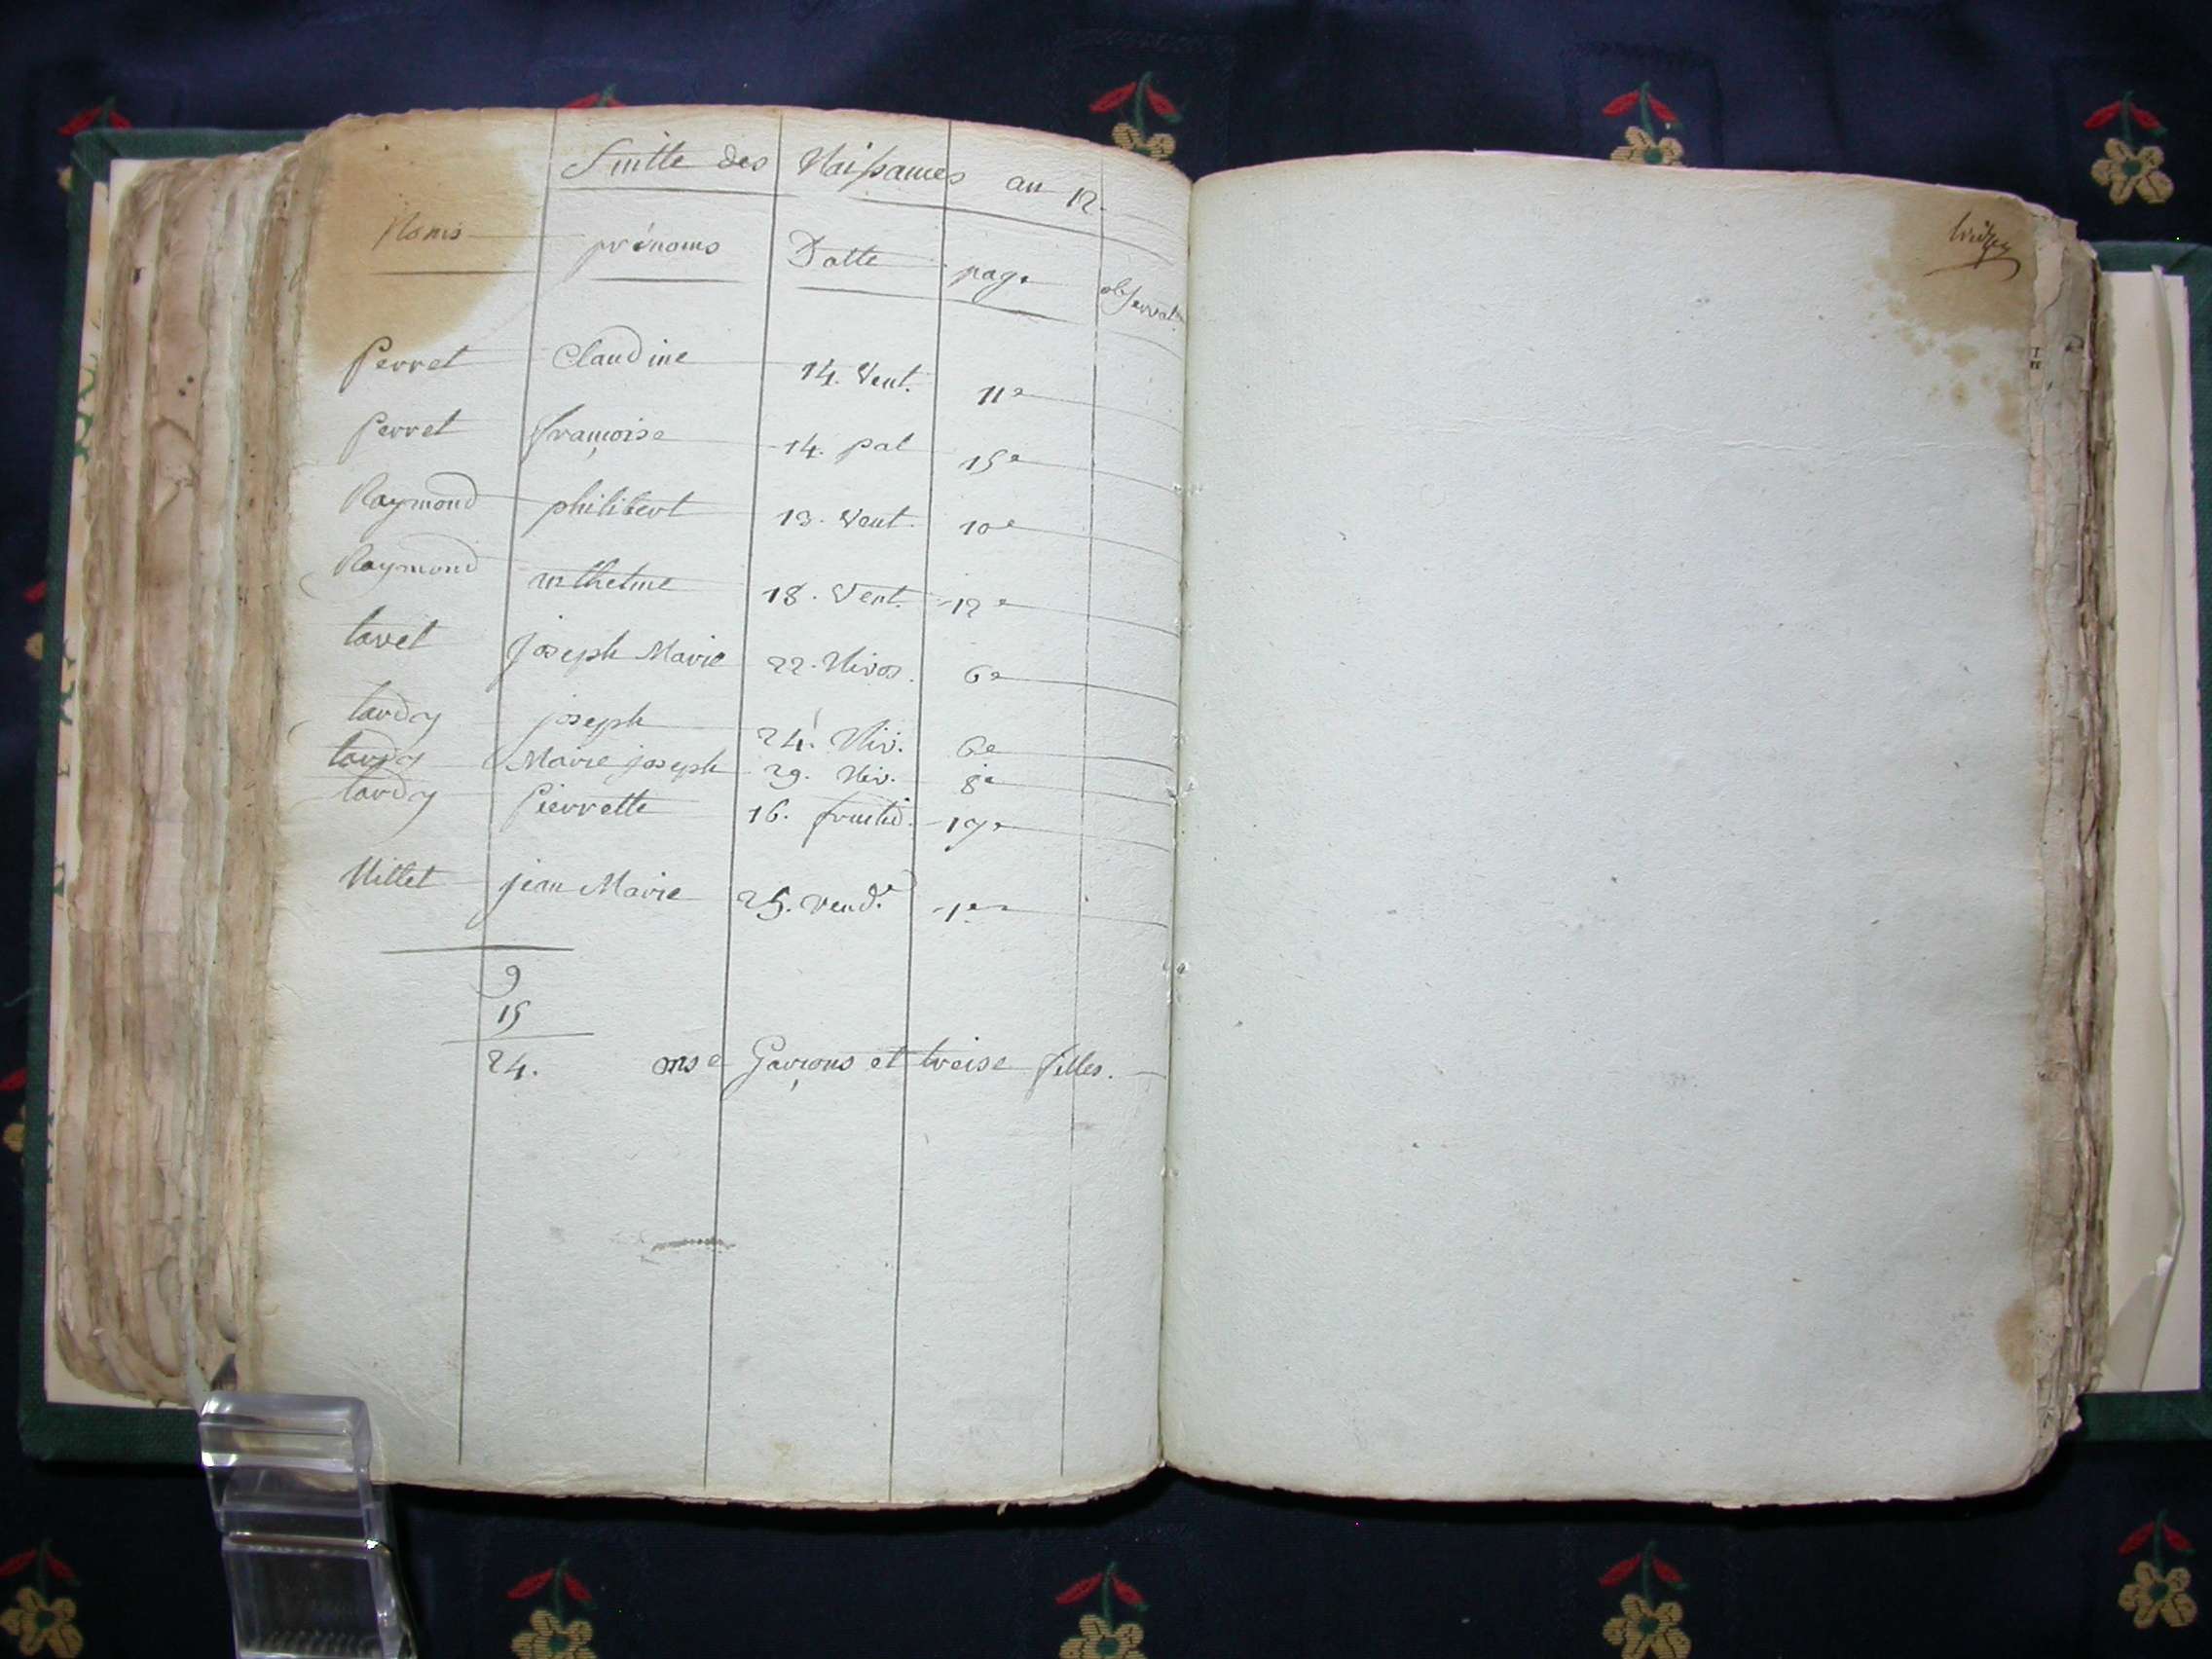 Suitte des Naissances an 12.
Noms prénoms Datte page observat.
Perret Claudine 14. Vent. 11e
Perret françoise 14. pral 15e
Raymond philibert 13. Vent. 10e
Raymond anthelme 18. Vent. 12e
tavel joseph Marie 22. Nivos. 6e
tardy joseph 24. Niv. 6e
tardy Marie joseph 29. Niv. 8e
tardy Pierrette 16. fructid. 17e
Millet jean Marie 25. Vend.e 1er
9
15
24. onse Garçons et treise filles.